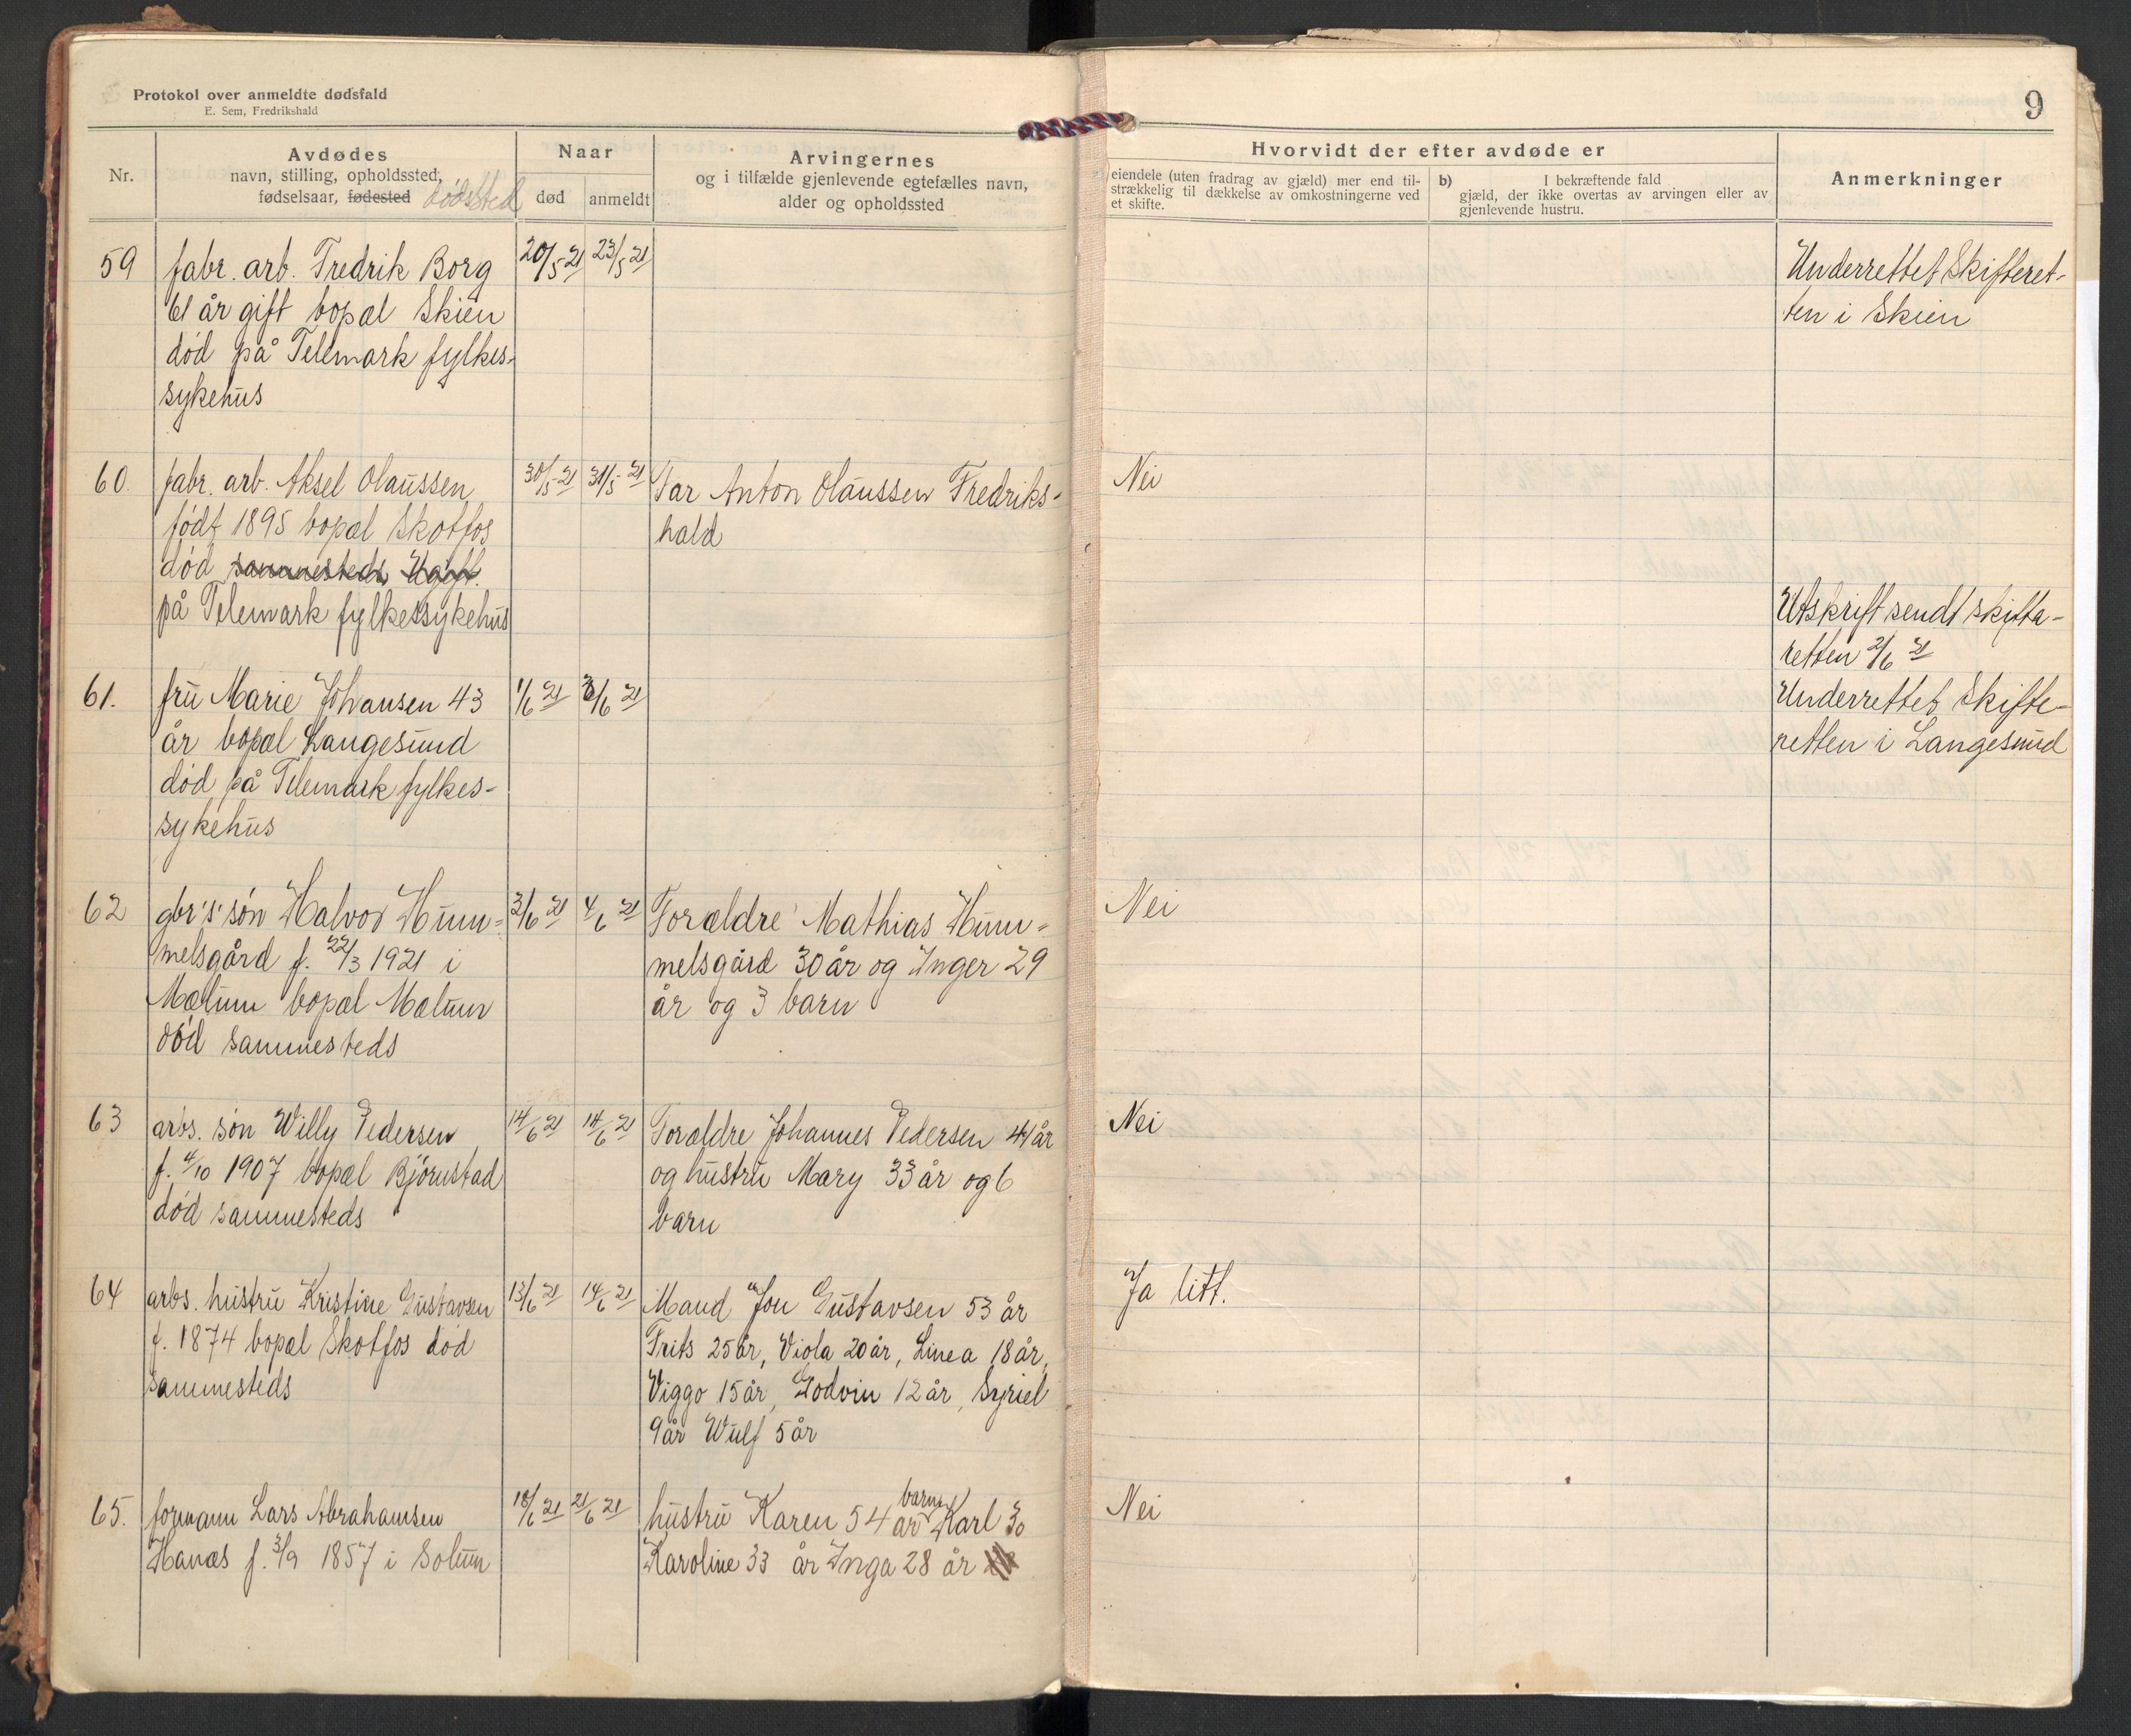 Protokol over anmeldte dødsfald
E. Sem, Fredrikshald
9
Nr.
Avdødes
navn, stilling, opholdssted,
fødselsaar, fødested dödssted
Naar
død
anmeldt
Arvingernes
og i tilfælde gjenlevende egtefælles navn,
alder og opholdssted
Hvorvidt der efter avdøde er
eiendele (uten fradrag av gjæld) mer end til-
strækkelig til dækkelse av omkostningerne ved
et skifte.
b) I bekræftende fald
gjæld, der ikke overtas av arvingen eller av
gjenlevende hustru.
Anmerkninger
59 fabr. arb. Fredrik Borg 20/5 21 23/5 21 Underrettet Skifteret-
61 år gift bopæl Skien ten i Skien
död på Telemark fylkes-
sykehus
60. fabr. arb. Aksel Olaussen 30/5 21 31/5 21 Far Anton Olaussen Fredriks- Nei
födt 1895 bopæl Skotfos hald
död sammesteds Ugift.
på Telemark fylkessykehus Utskrift sendt skifte-
retten 2/6 21
61. fru Marie Johansen 43 1/6 21 3/6 21 Underrettet Skifte-
år bopæl Langesund retten i Langesund
död på Telemark fylkes-
sykehus
62 gbr's sön Halvor Hum- 3/6 21 4/6 21 Forældre Mathias Hum- Nei
melsgård f. 22/3 1921 i melsgård 30 år og Inger 29
Mælum bopæl Mælum år og 3 barn
död sammesteds
63 arbs. sön Willy Pedersen 14/6 21 14/6 21 Forældre Johannes Pedersen 41 år Nei
f. 4/10 1907 bopæl Björnstad og hustru Mary 33 år og 6
död sammesteds barn
64 arbs. hustru Kristine Gustavsen 13/6 21 14/6 21 Mand Jon Gustavsen 53 år Ja litt.
f. 1874 bopæl Skotfos död Frits 25 år, Viola 20 år, Linea 18 år,
sammesteds Viggo 15 år, Godvin 12 år, Syriel
9 år Wulf 5 år
65. formann Lars Abrahamsen 18/6 21 21/6 21 hustru Karen 54 år barn Karl 30 Nei
Hanæs f. 3/9 1857 i Solum Karoline 33 år Inga 28 år